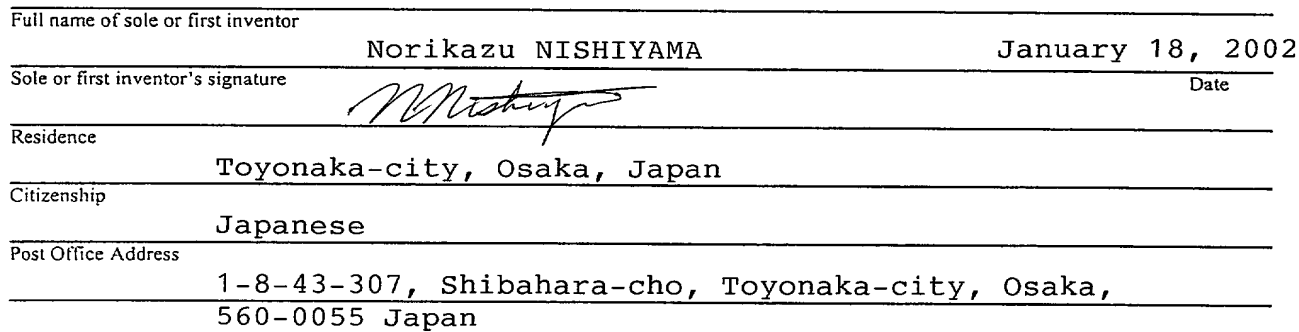 Full name of sole or first inventor
Norikazu NISHIYAMA January 18, 2002
Sole or first inventor's signature Date
N. Nishiya
Residence
Toyonaka-city, Osaka, Japan
Citizenship
Japanese
Post Office Address
1-8-43-307, Shibahara-cho, Toyonaka-city, Osaka,
560-0055 Japan